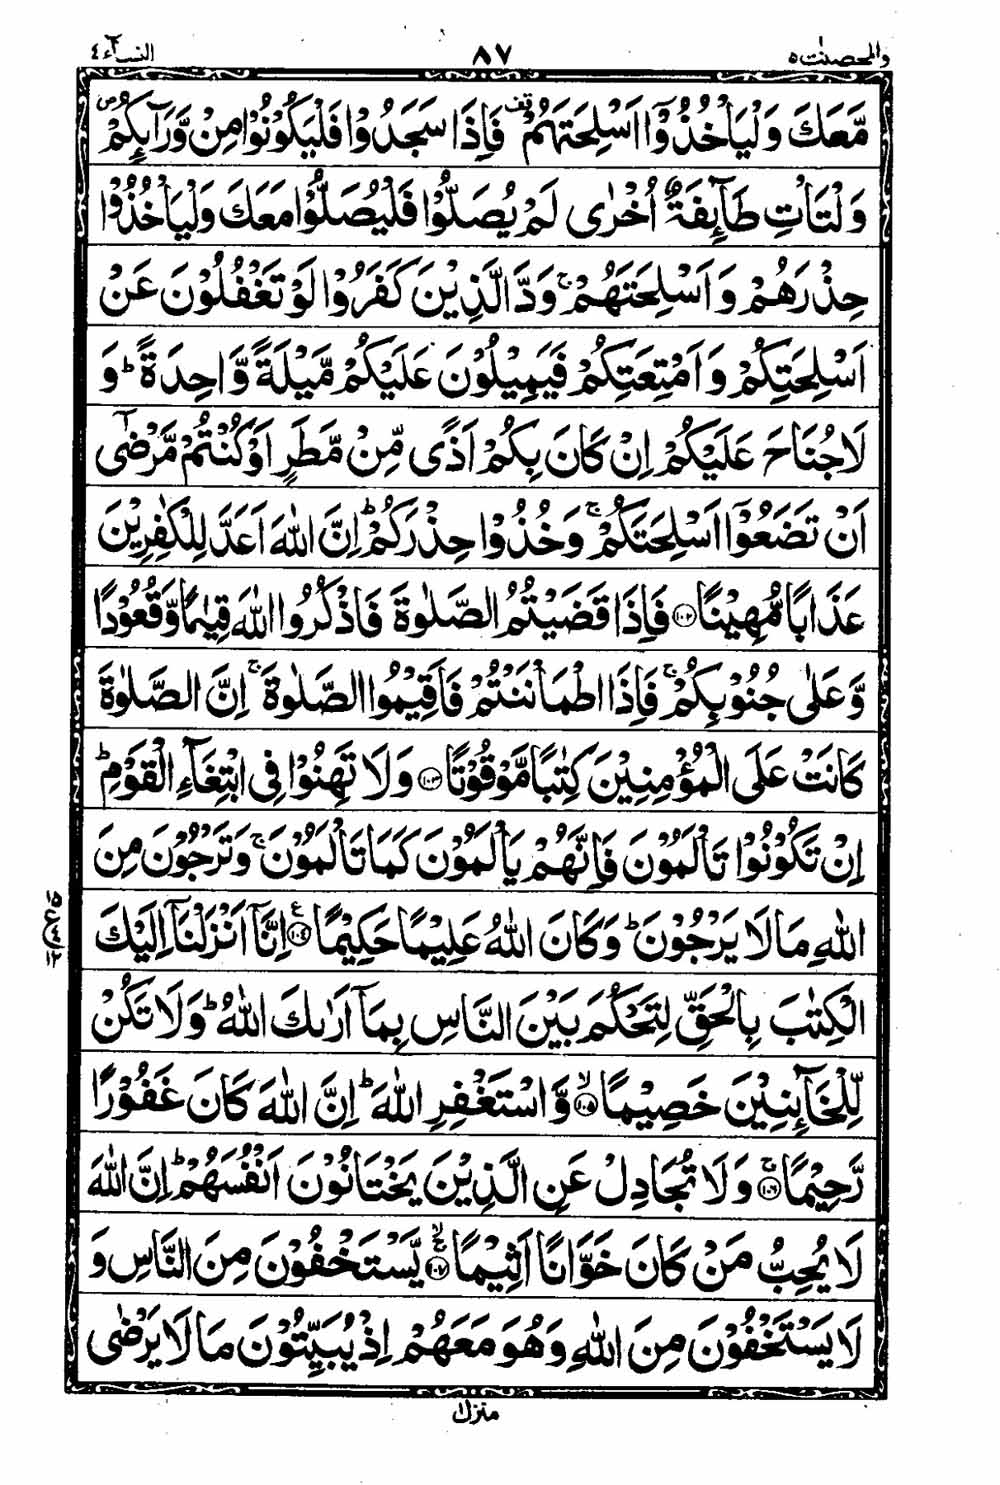 والمحصنٰت ٥ ٨٧ النسآء ٤
مَّعَكَ وَلْيَاْخُذُوْۤا اَسْلِحَتَهُمْ ۫ فَاِذَا سَجَدُوْا فَلْيَكُوْنُوْا مِنْ وَّرَآىِٕكُمْ ۪
وَلْتَاْتِ طَآىِٕفَةٌ اُخْرٰى لَمْ يُصَلُّوْا فَلْيُصَلُّوْا مَعَكَ وَلْيَاْخُذُوْا
حِذْرَهُمْ وَاَسْلِحَتَهُمْ ۚ وَدَّ الَّذِيْنَ كَفَرُوْا لَوْ تَغْفُلُوْنَ عَنْ
اَسْلِحَتِكُمْ وَاَمْتِعَتِكُمْ فَيَمِيْلُوْنَ عَلَيْكُمْ مَّيْلَةً وَّاحِدَةً ؕ وَ
لَا جُنَاحَ عَلَيْكُمْ اِنْ كَانَ بِكُمْ اَذًى مِّنْ مَّطَرٍ اَوْ كُنْتُمْ مَّرْضٰۤى
اَنْ تَضَعُوْۤا اَسْلِحَتَكُمْ ۚ وَخُذُوْا حِذْرَكُمْ ؕ اِنَّ اللّٰهَ اَعَدَّ لِلْكٰفِرِيْنَ
عَذَابًا مُّهِيْنًا ۝١٠٢ فَاِذَا قَضَيْتُمُ الصَّلٰوةَ فَاذْكُرُوا اللّٰهَ قِيٰمًا وَّقُعُوْدًا
وَّعَلٰى جُنُوْبِكُمْ ۚ فَاِذَا اطْمَاْنَنْتُمْ فَاَقِيْمُوا الصَّلٰوةَ ۚ اِنَّ الصَّلٰوةَ
كَانَتْ عَلَى الْمُؤْمِنِيْنَ كِتٰبًا مَّوْقُوْتًا ۝١٠٣ وَلَا تَهِنُوْا فِى ابْتِغَآءِ الْقَوْمِ ؕ
اِنْ تَكُوْنُوْا تَاْلَمُوْنَ فَاِنَّهُمْ يَاْلَمُوْنَ كَمَا تَاْلَمُوْنَ ۚ وَتَرْجُوْنَ مِنَ
اللّٰهِ مَا لَا يَرْجُوْنَ ؕ وَكَانَ اللّٰهُ عَلِيْمًا حَكِيْمًا ۝١٠٤ اِنَّاۤ اَنْزَلْنَاۤ اِلَيْكَ
الْكِتٰبَ بِالْحَقِّ لِتَحْكُمَ بَيْنَ النَّاسِ بِمَاۤ اَرٰىكَ اللّٰهُ ؕ وَلَا تَكُنْ
لِّلْخَآىِٕنِيْنَ خَصِيْمًا ۝١٠٥ۙ وَّاسْتَغْفِرِ اللّٰهَ ؕ اِنَّ اللّٰهَ كَانَ غَفُوْرًا
رَّحِيْمًا ۝١٠٦ۚ وَلَا تُجَادِلْ عَنِ الَّذِيْنَ يَخْتَانُوْنَ اَنْفُسَهُمْ ؕ اِنَّ اللّٰهَ
لَا يُحِبُّ مَنْ كَانَ خَوَّانًا اَثِيْمًا ۝١٠٧ۙ يَّسْتَخْفُوْنَ مِنَ النَّاسِ وَ
لَا يَسْتَخْفُوْنَ مِنَ اللّٰهِ وَهُوَ مَعَهُمْ اِذْ يُبَيِّتُوْنَ مَا لَا يَرْضٰى
منزل ١